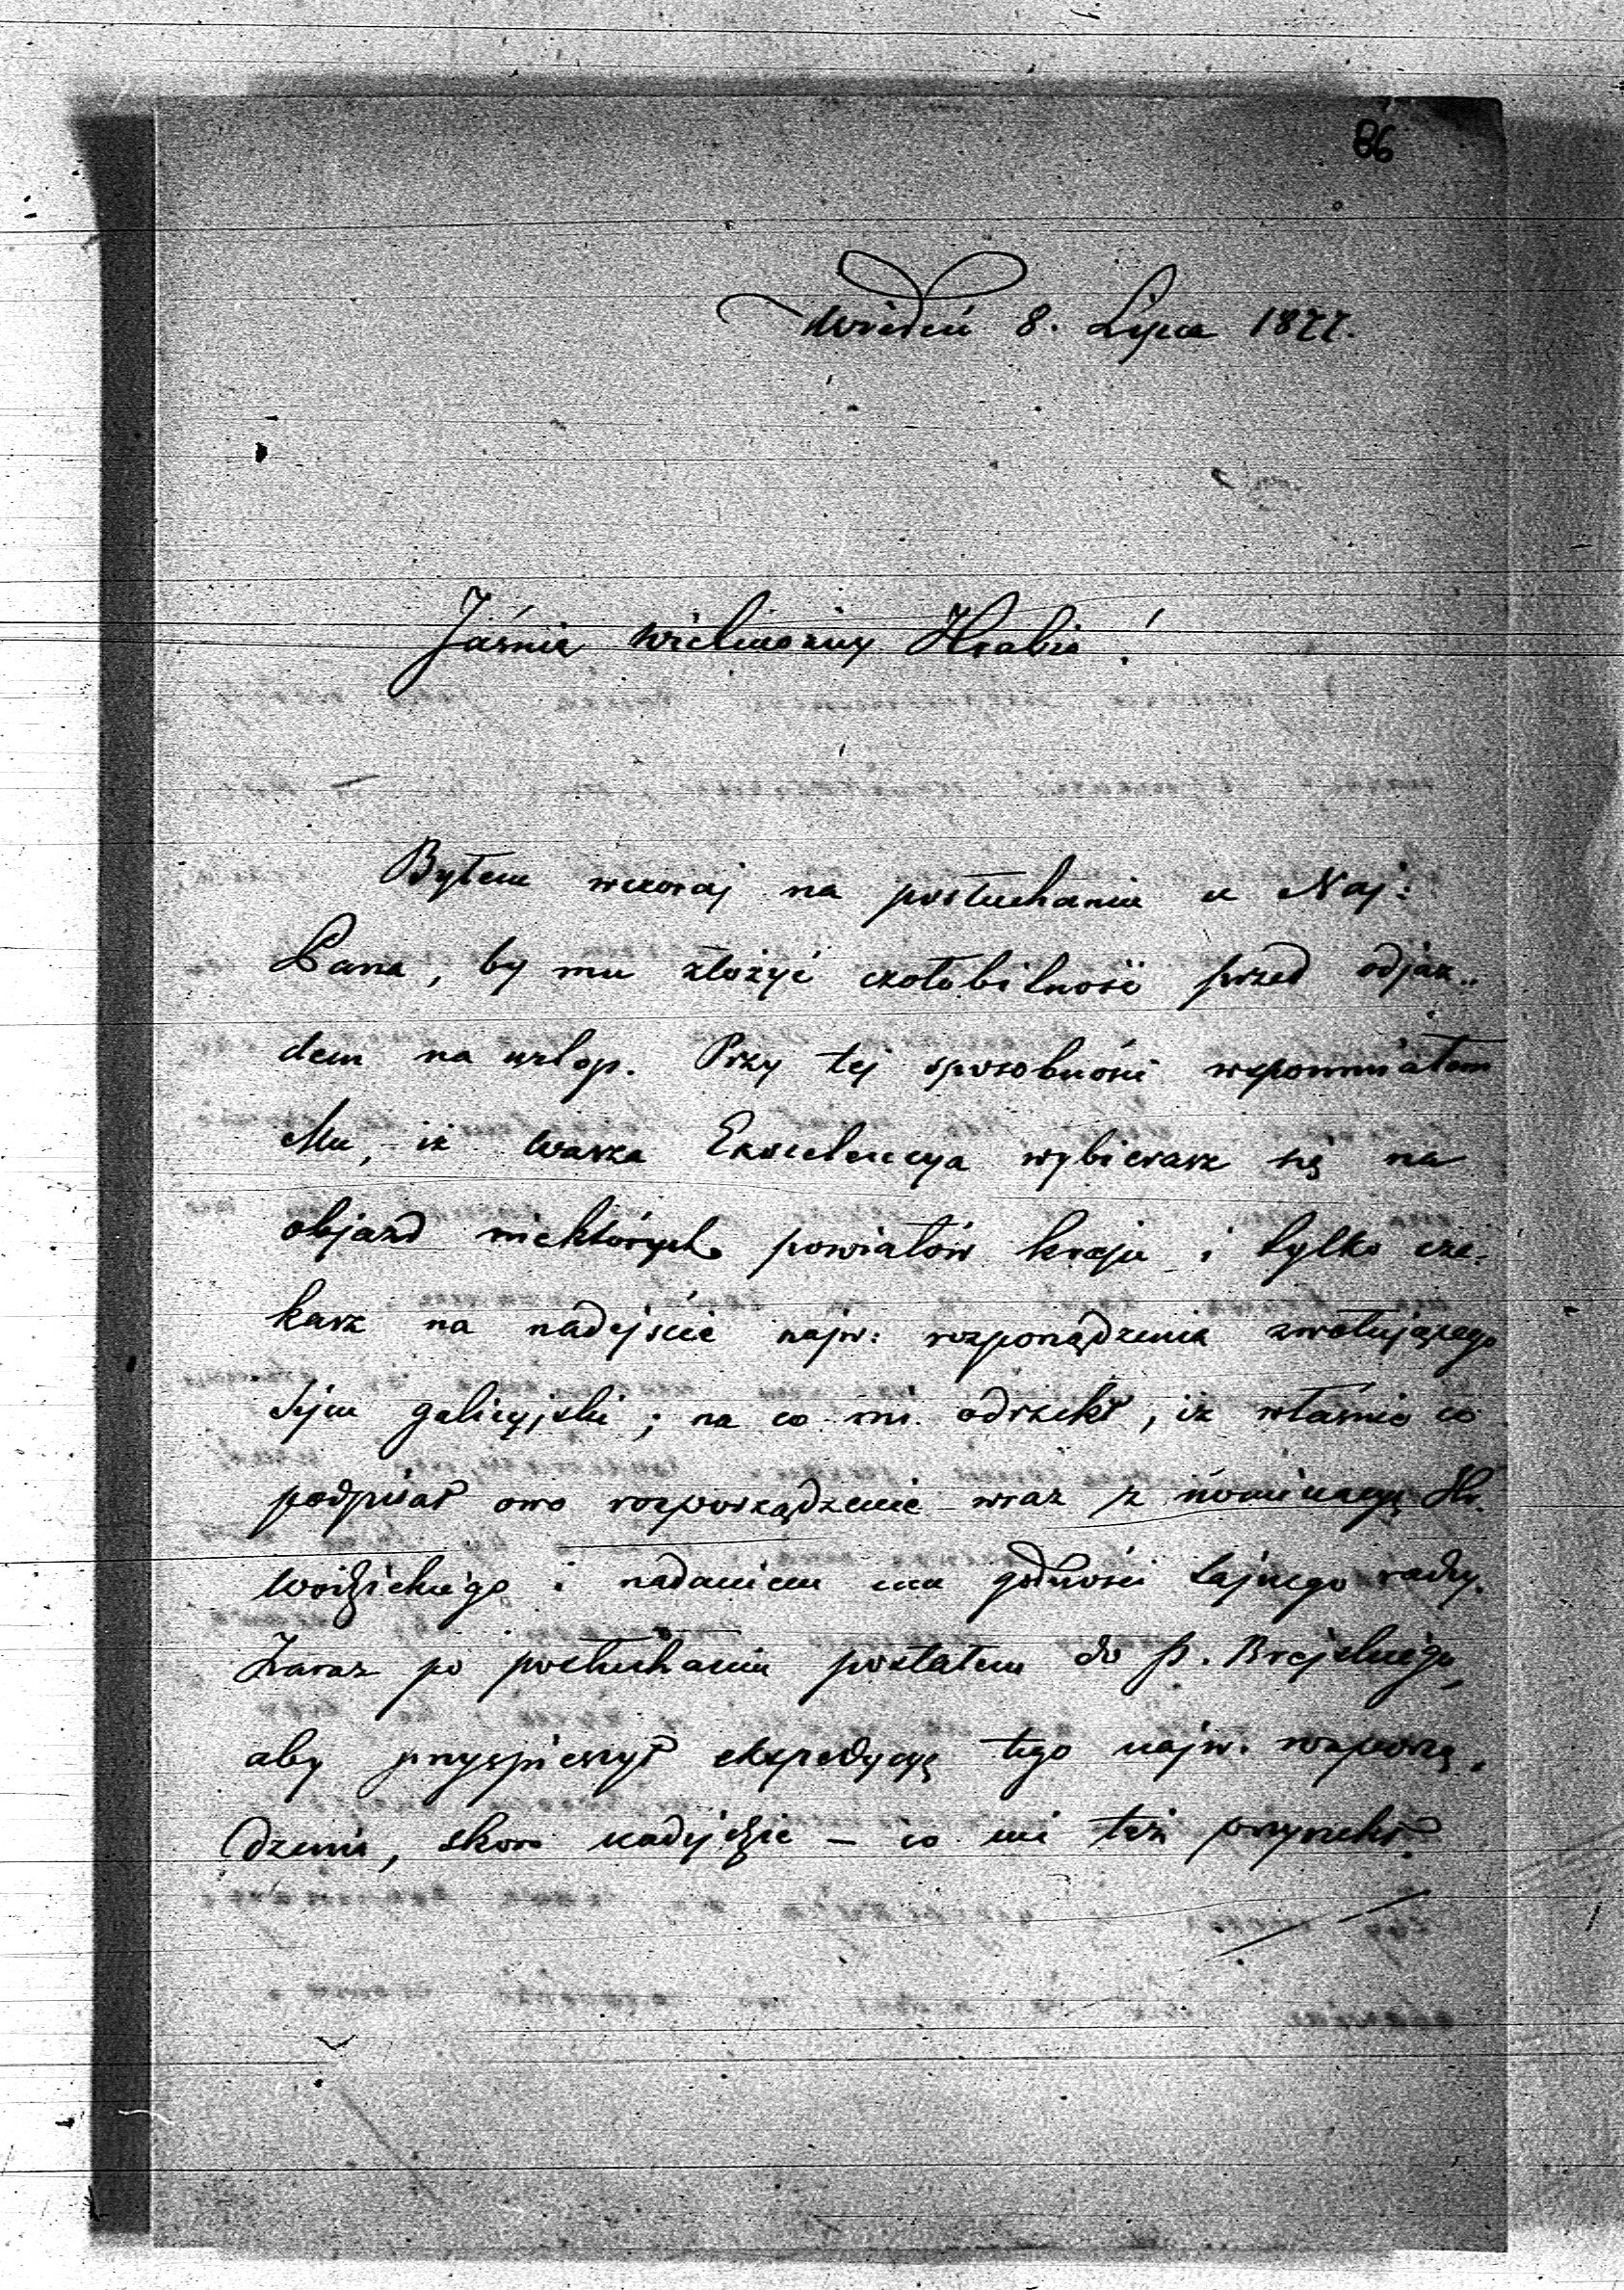 86
Wiedeń 8. Lipca 1877.
Jaśnie Wielmożny Hrabio!
Byłem wczoraj na posłuchaniu u Naj:
Pana, by mu złożyć czołobitność przed odjaz„
dem na urlop. Przy tej sposobności wspomniałem
Mu, iż Wasza Excelencya wybierasz się na
objazd niektórych powiatów kraju i tylko cze-
kasz na nadejście najw: rozporządzenia zwołującego
Sejm galicyjski; na co mi odrzekł, iż właśnie co
podpisał owo rozporządzenie wraz z nominacyą Hr.
Wodzickiego i nadaniem mu godności tajnego radzy.
Zaraz po posłuchaniu posłałem do p.
aby przyspieszył ekspedycyę tego najw. rozporzą-
dzenia, skoro nadejdzie – co mi też przyrzekł.